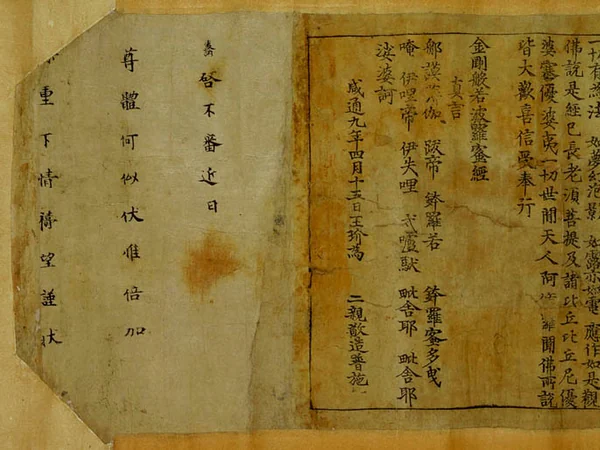 一切有為法 如夢幻泡影 如露亦如電 應作如是觀
佛說是經已長老須菩提及諸比丘比丘尼優
婆塞優婆夷一切世間天人阿修羅聞佛所說
皆大歡喜信受奉行
金剛般若波羅蜜經
真言
那謨薄伽 跋帝 鉢羅若 鉢羅蜜多曳
唵 伊哩帝 伊失哩 戍嚧馱 毗舍耶 毗舍耶
娑婆訶
咸通九年四月十五日王玠為 二親敬造普施
啓不番近日
尊體何似伏惟倍加
重下情禱望謹狀